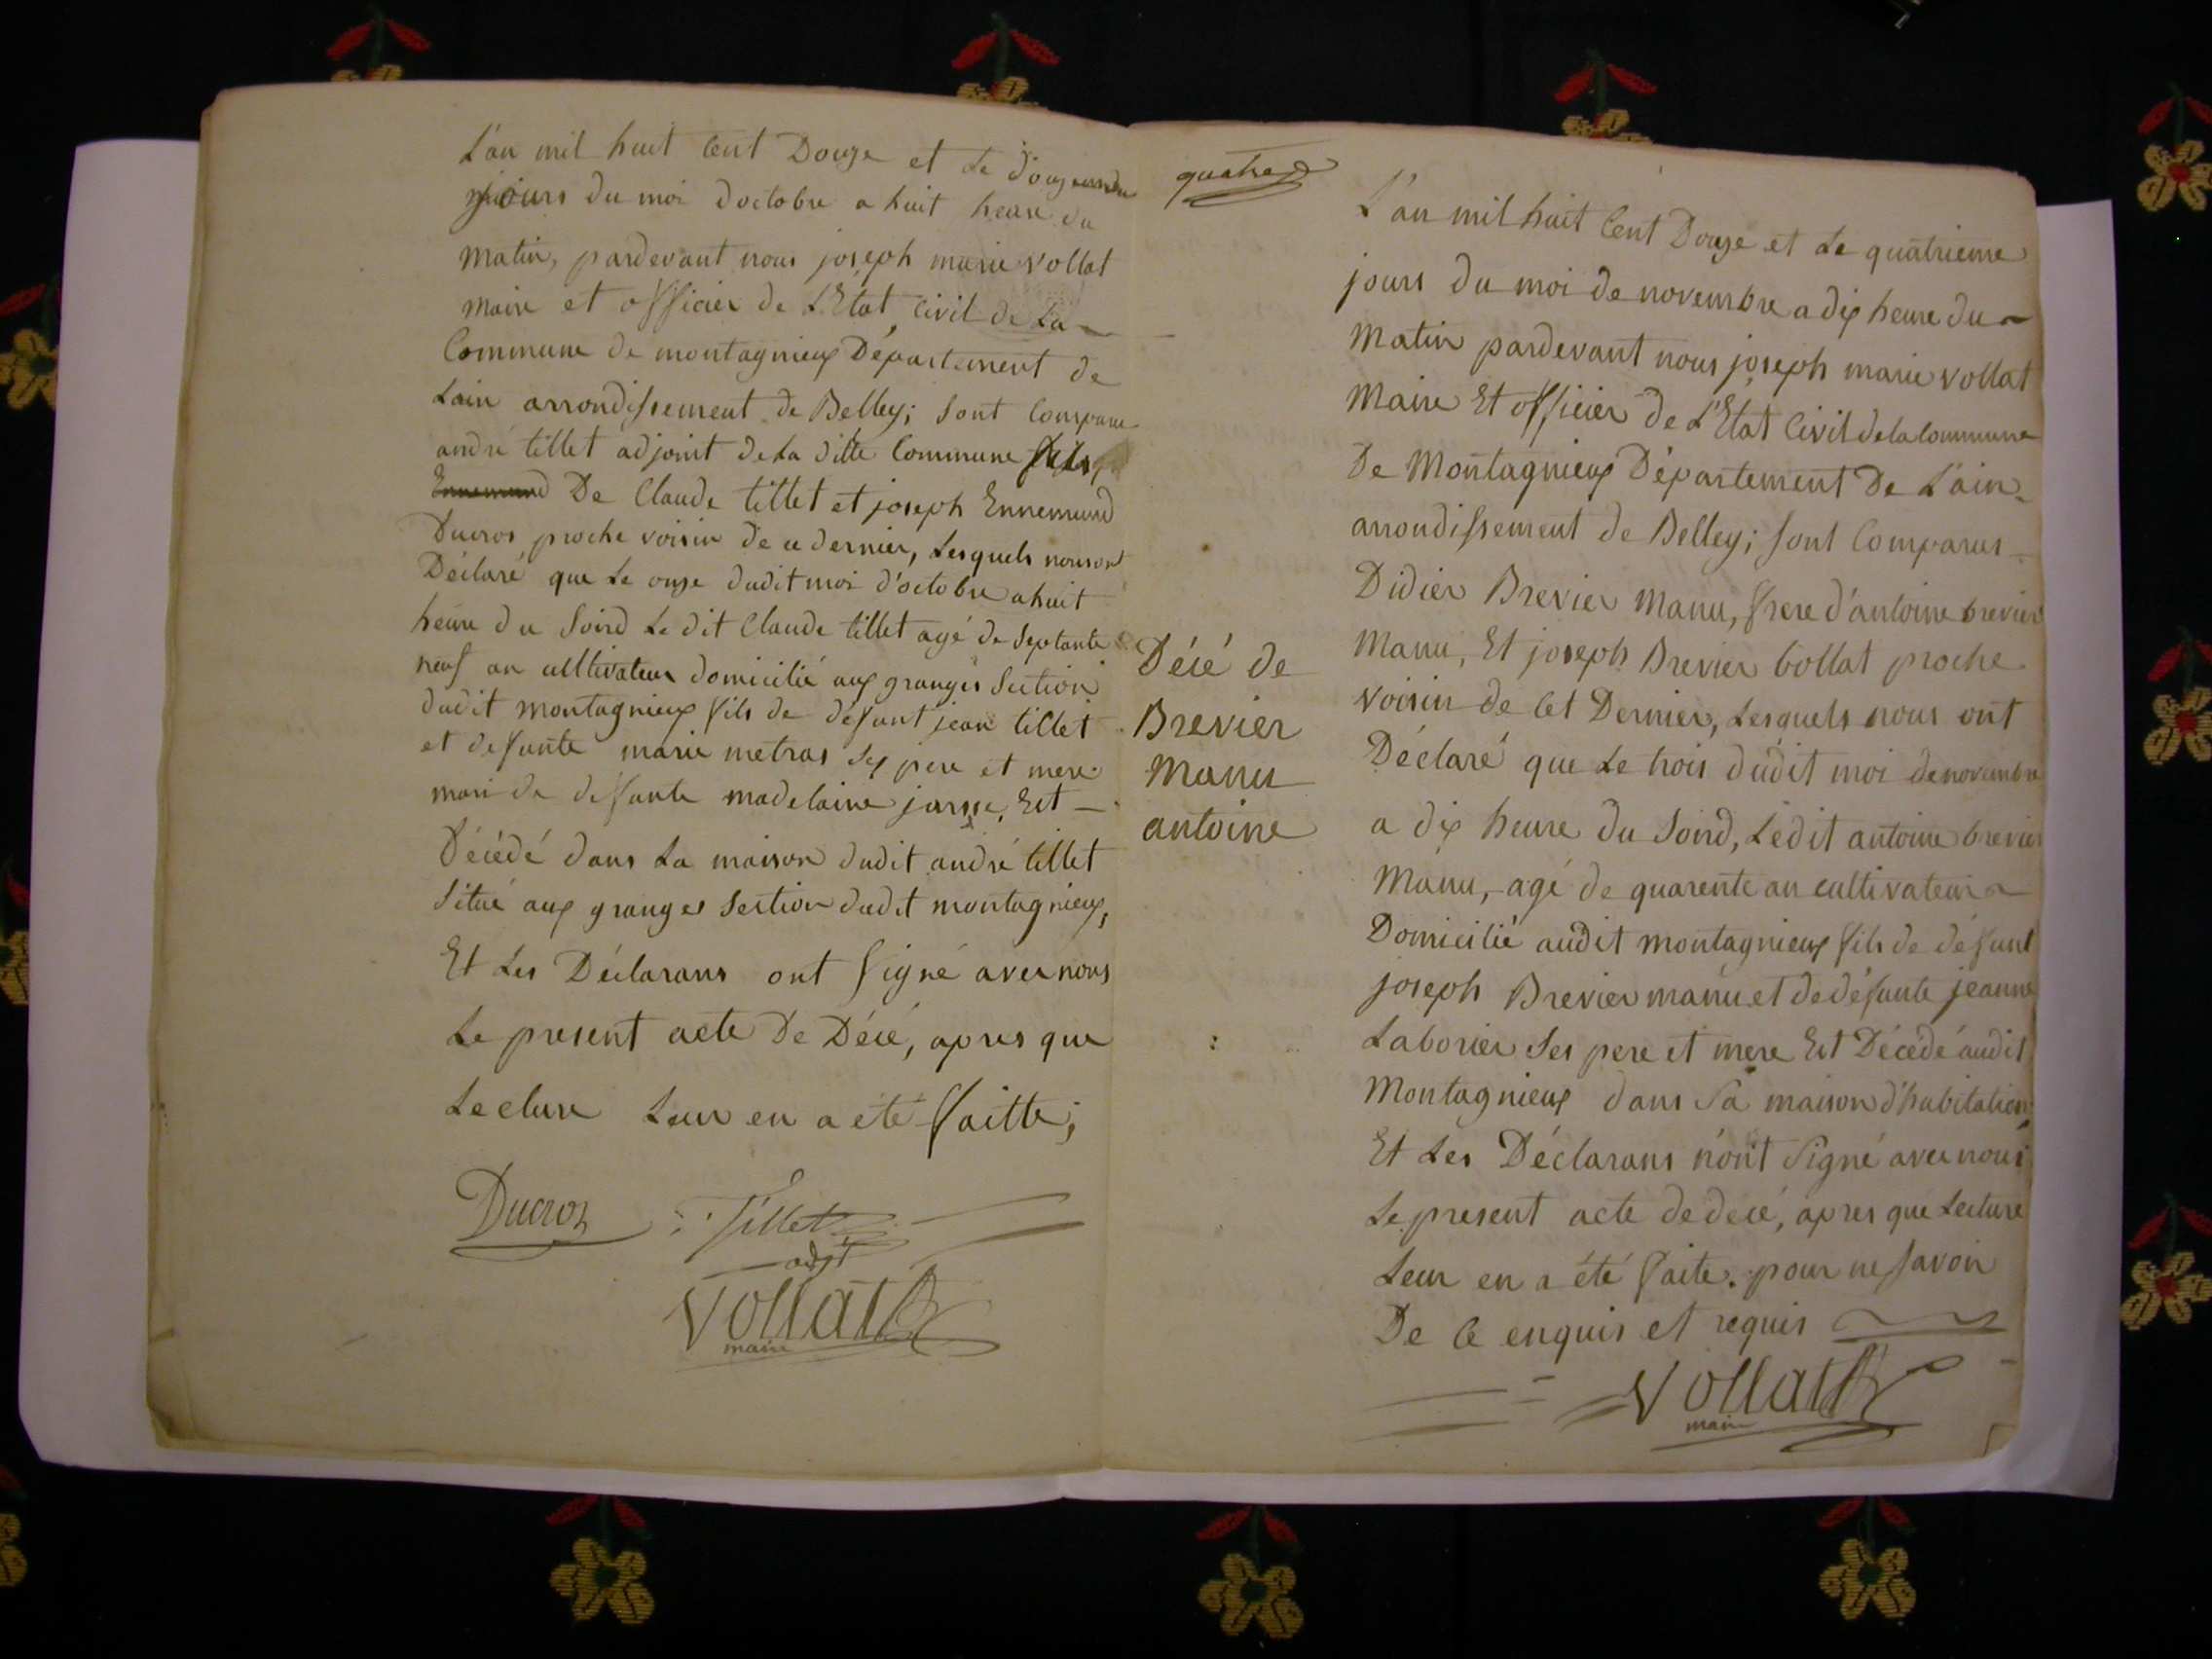 L'an mil huit Cent Douze et Le douzieme
jours du moi doctobre a huit heure du
matin, pardevant nous joseph marie vollat
maire et officier de L'Etat Civil de La
Commune de montagnieux Département de
Lain arrondissement de Belley; sont Comparu
andré tillet adjoint de La ditte Commune fils
De Claude tillet et joseph Ennemund
Ducros proche voisin de ce dernier, Lesquels nous ont
Déclaré que Le onze dudit moi d'octobre a huit
heure du Soird Le dit Claude tillet agé de Septante
neuf an cultivateur domicilié aux granges Section
dudit montagnieux fils de defunt jean tillet
et defunte marie metras Ses pere et mere
mari de defunte madelaine Est
Décédé dans La maison dudit andré tillet
Situé aux granges Section dudit montagnieux,
Et Les Déclarans ont Signé avec nous
Le present acte De Décé, apres que
Lecture Leur en a été faitte;
Ducros Tillet
adjt
Vollat
maire
quatre
L'an mil huit Cent Douze et Le quatrieme
jours du moi de novembre a dix heure du
Matin pardevant nous joseph marie vollat
Maire Et officier de L'Etat Civil de la Commune
De Montagnieux Département De L'ain
arrondissement de Belley; sont Comparus
Didier Brevier Manu, frere d'antoine brevier
Manu, Et joseph Brevier bollat proche
voisin de Cet Dernier, Lesquels nous ont
Déclaré que Le trois dudit moi de novembre
a dix heure du Soird, Ledit antoine brevier
Manu, agé de quarente an cultivateur
Domicilié audit montagnieux fils de défunt
joseph Brevier manu et de défunte jeanne
Laborier Ses pere et mere Est Décédé audit
Montagnieux dans Sa maison d'habitation,
Et Les Déclarans n'ont Signé avec nous
Le present acte de decé, apres que Lecture
Leur en a été faite. pour ne savoir
De Ce enquis et requis
Vollat
maire
Décé de
Brevier
Manu
antoine